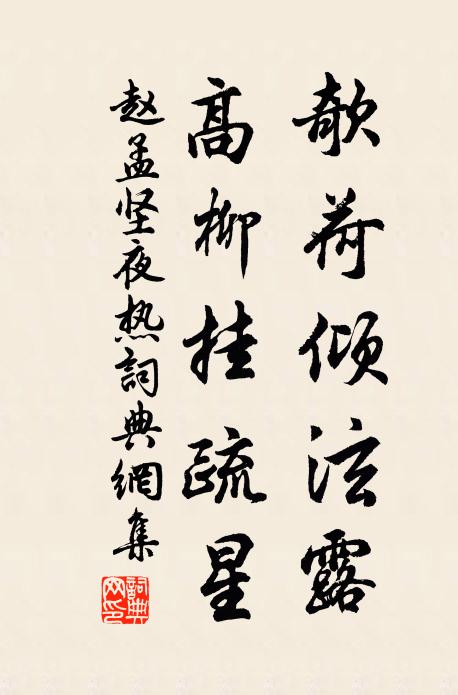 欹荷倾泫露
高柳挂疏星
赵孟坚夜热詞典網集
詞典网印